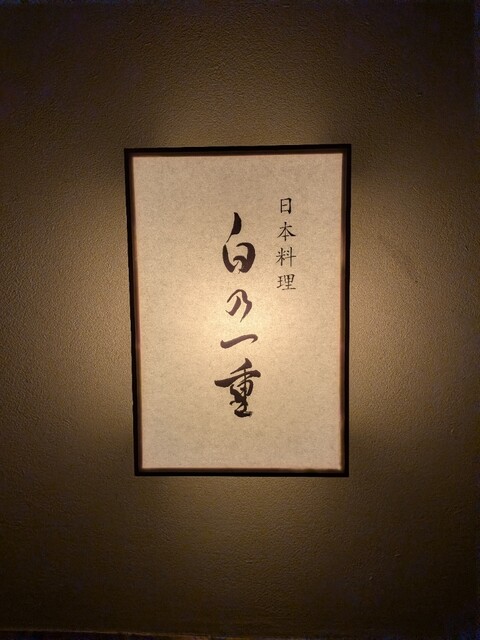 日本料理
白乃一重